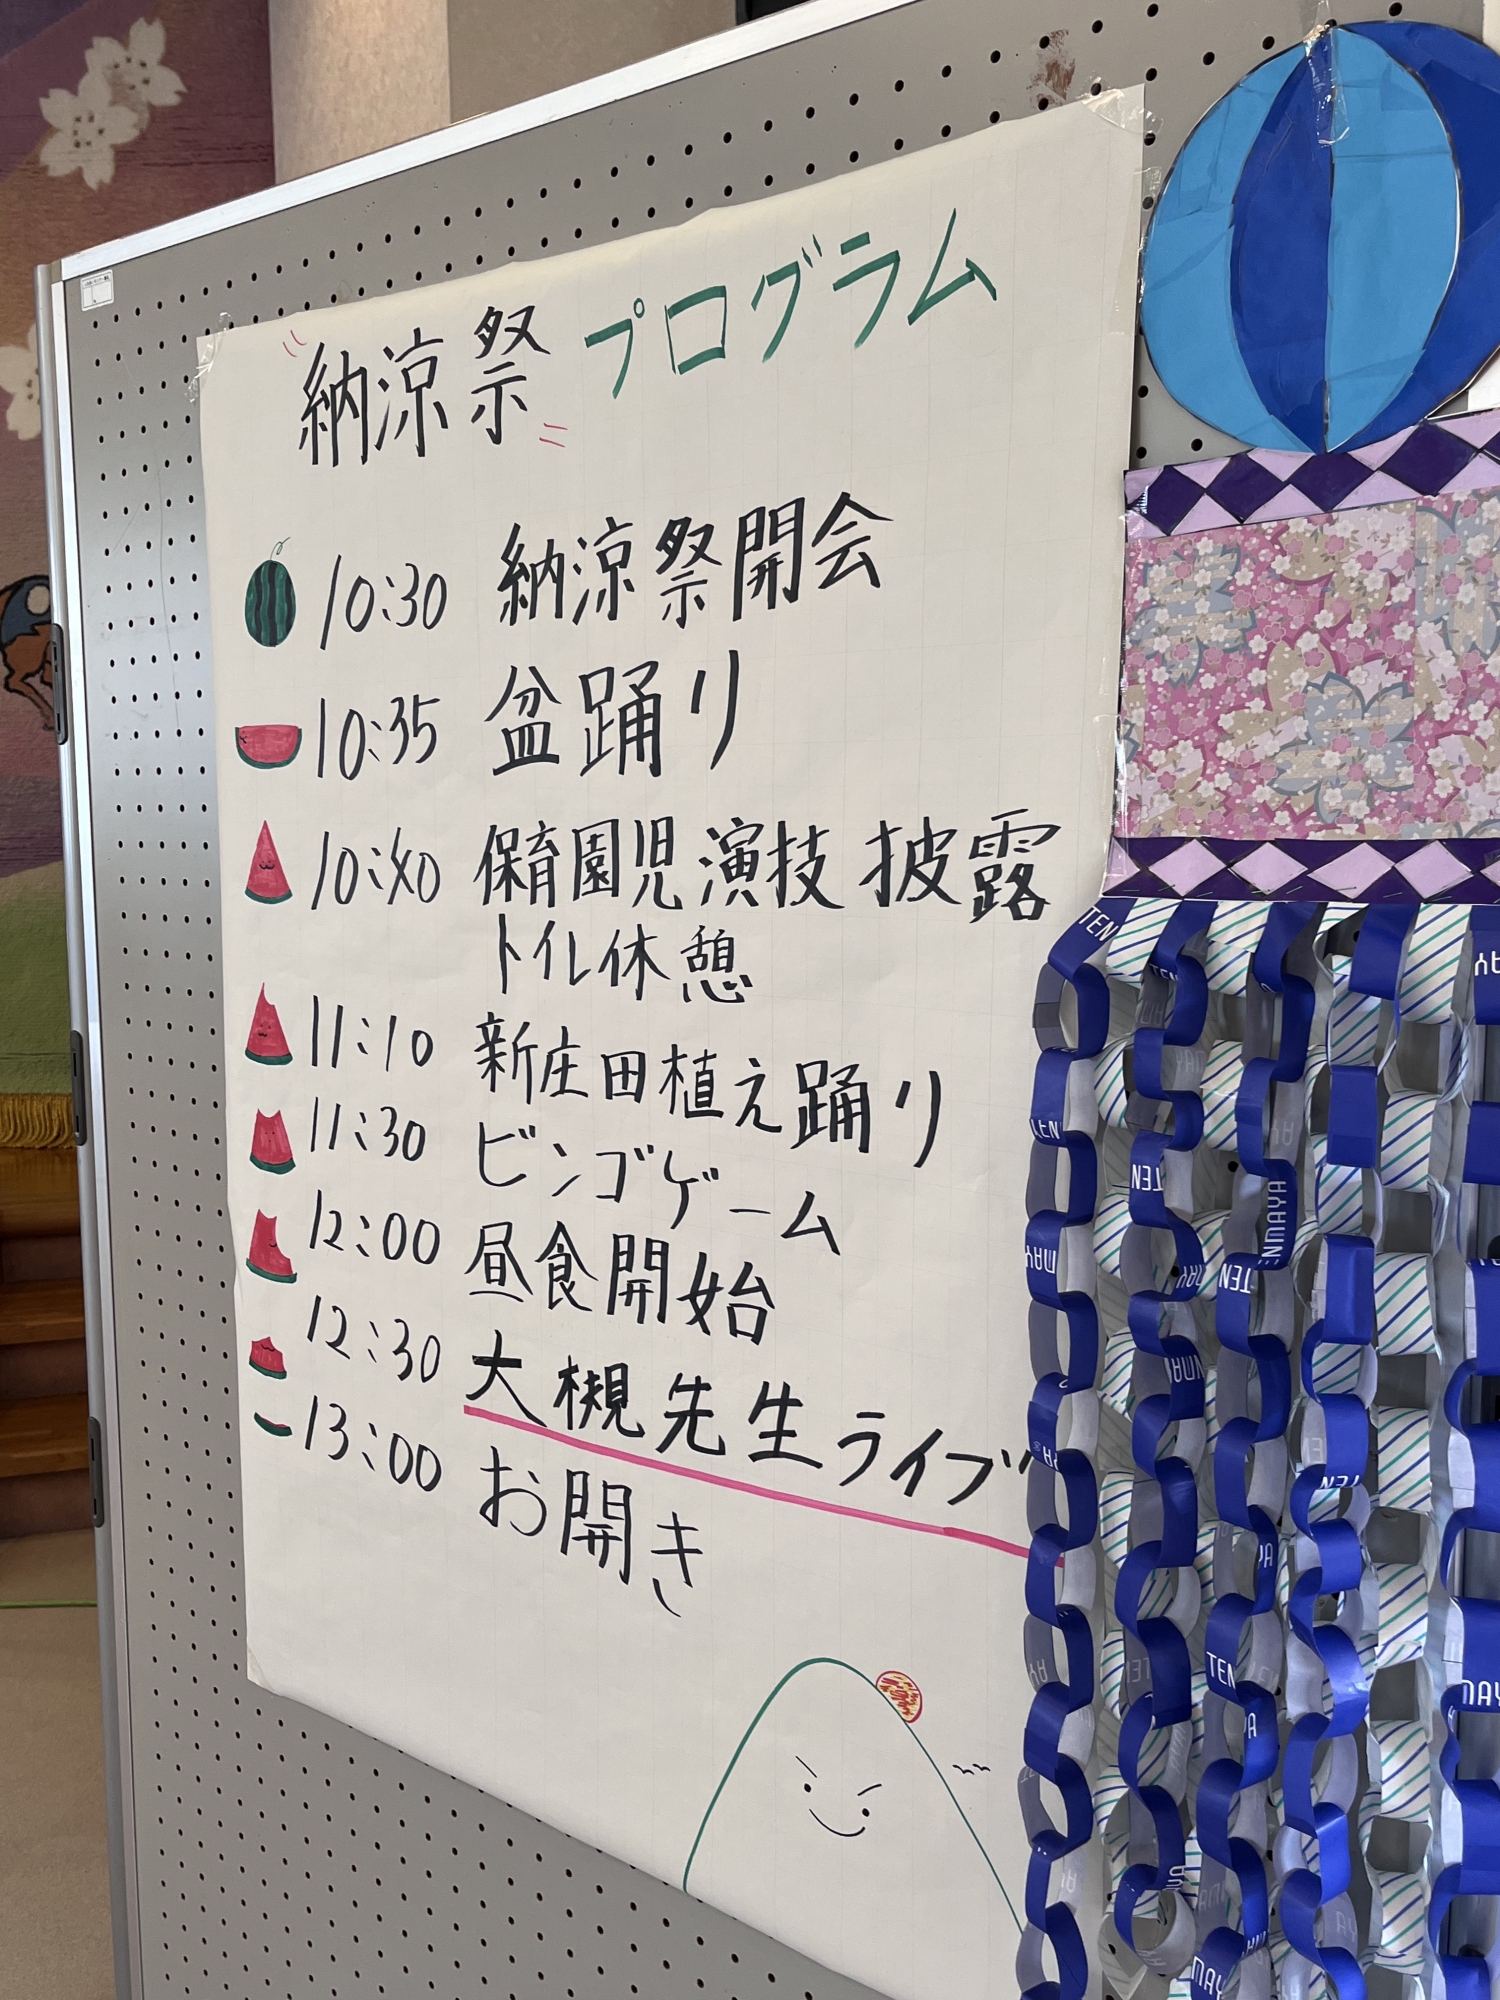 納涼祭 プログラム
10:30 納涼祭開会
10:35 盆踊り
10:40 保育園児演技披露
トイレ休憩
11:10 新庄田植え踊り
11:30 ビンゴゲーム
12:00 昼食開始
12:30 大槻先生ライブ
13:00 お開き